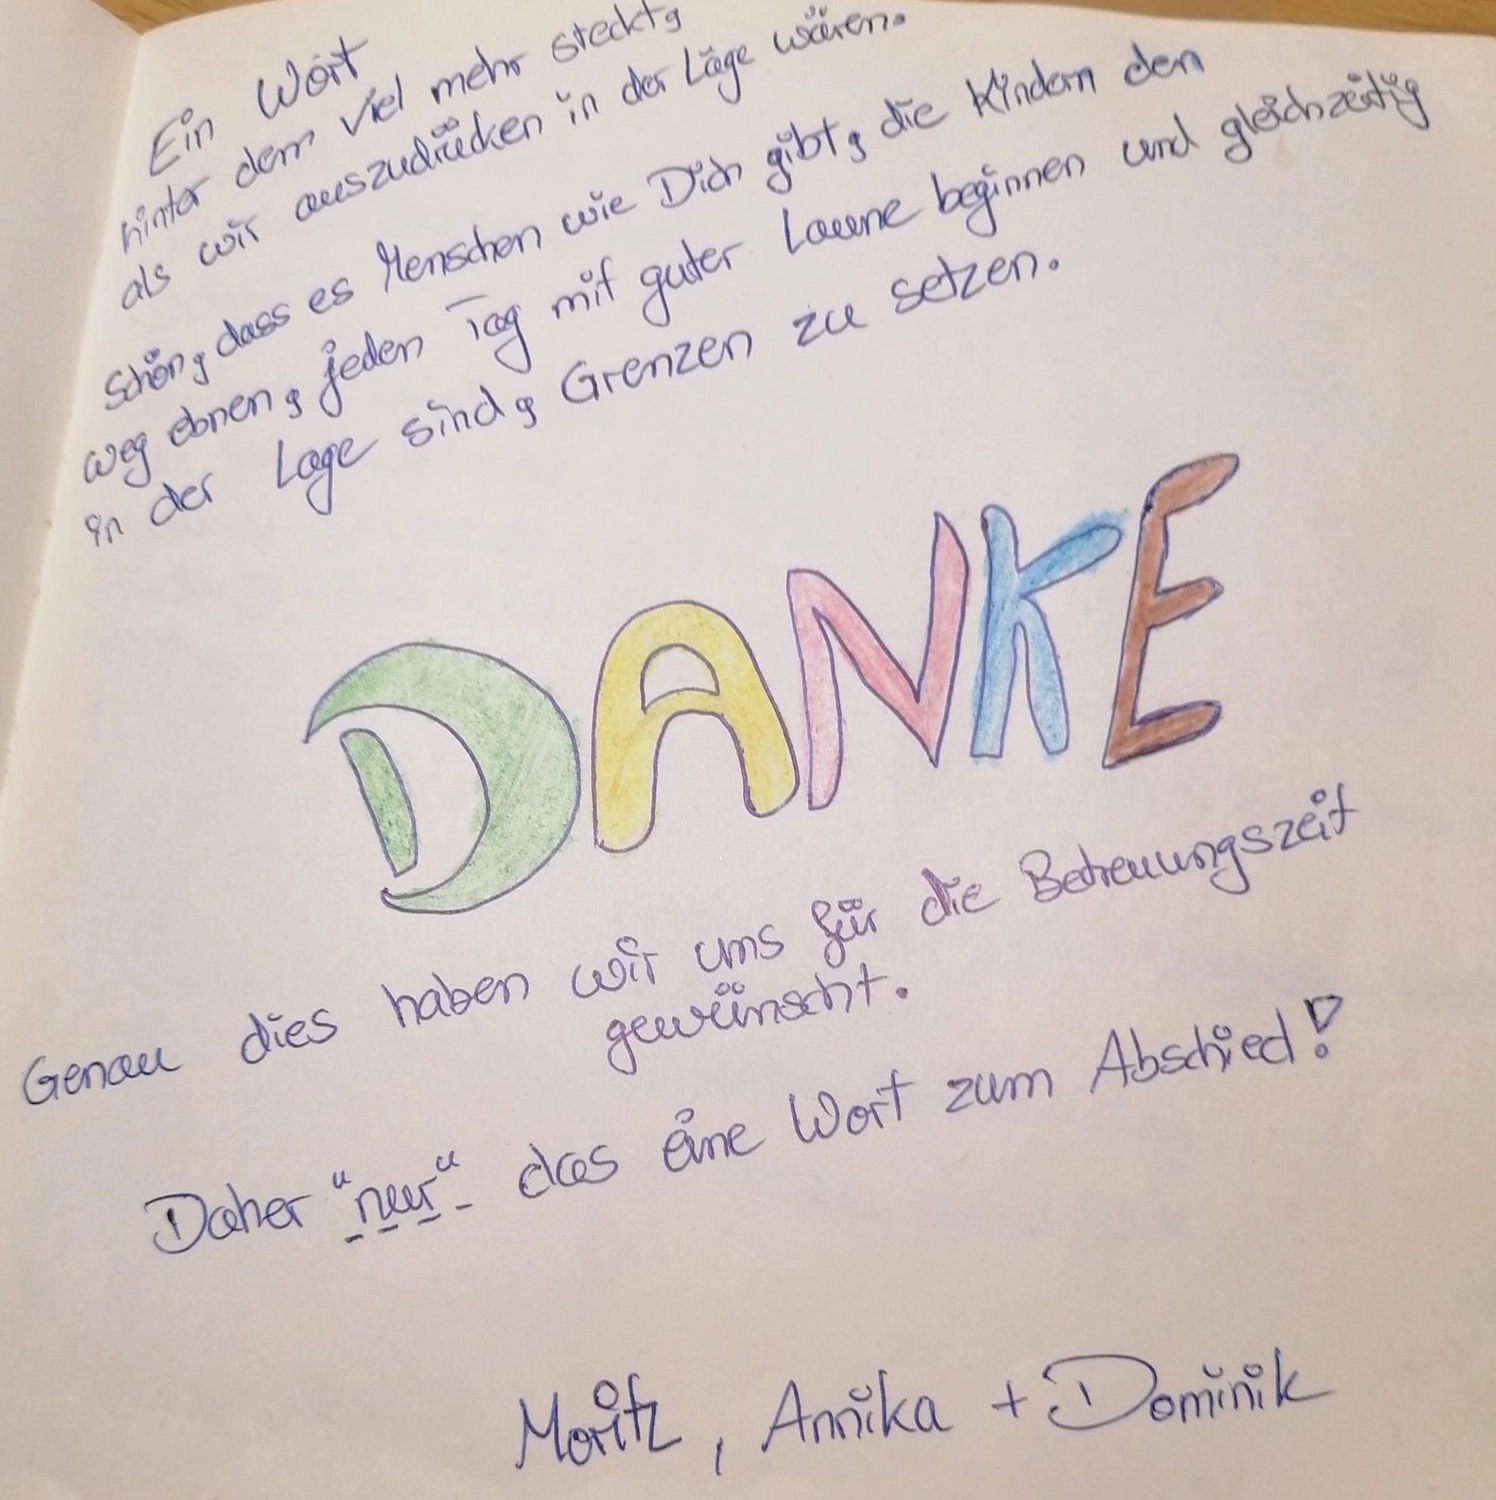 Ein Wort
hinter dem viel mehr steckt,
als wir auszudrücken in der Lage wären.
Schön, dass es Menschen wie Dich gibt, die Kindern den
Weg ebnen, jeden Tag mit guter Laune beginnen und gleichzeitig
in der Lage sind, Grenzen zu setzen.
DANKE
Genau dies haben wir uns für die Betreuungszeit
gewünscht.
Daher "nur" das eine Wort zum Abschied!
Moritz, Annika + Dominik